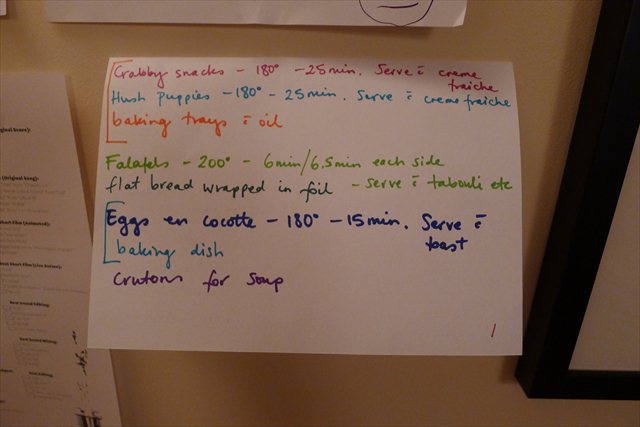 Crabby snacks - 180° - 25min. Serve c̄ creme
fraiche
Hush puppies - 180° - 25min. Serve c̄ creme fraiche
baking trays c̄ oil
Falafels - 200° - 6min/6.5min each side
flat bread wrapped in foil - serve c̄ tabouli etc
Eggs en cocotte - 180° - 15min. Serve c̄
toast
baking dish
Crutons for soup
1